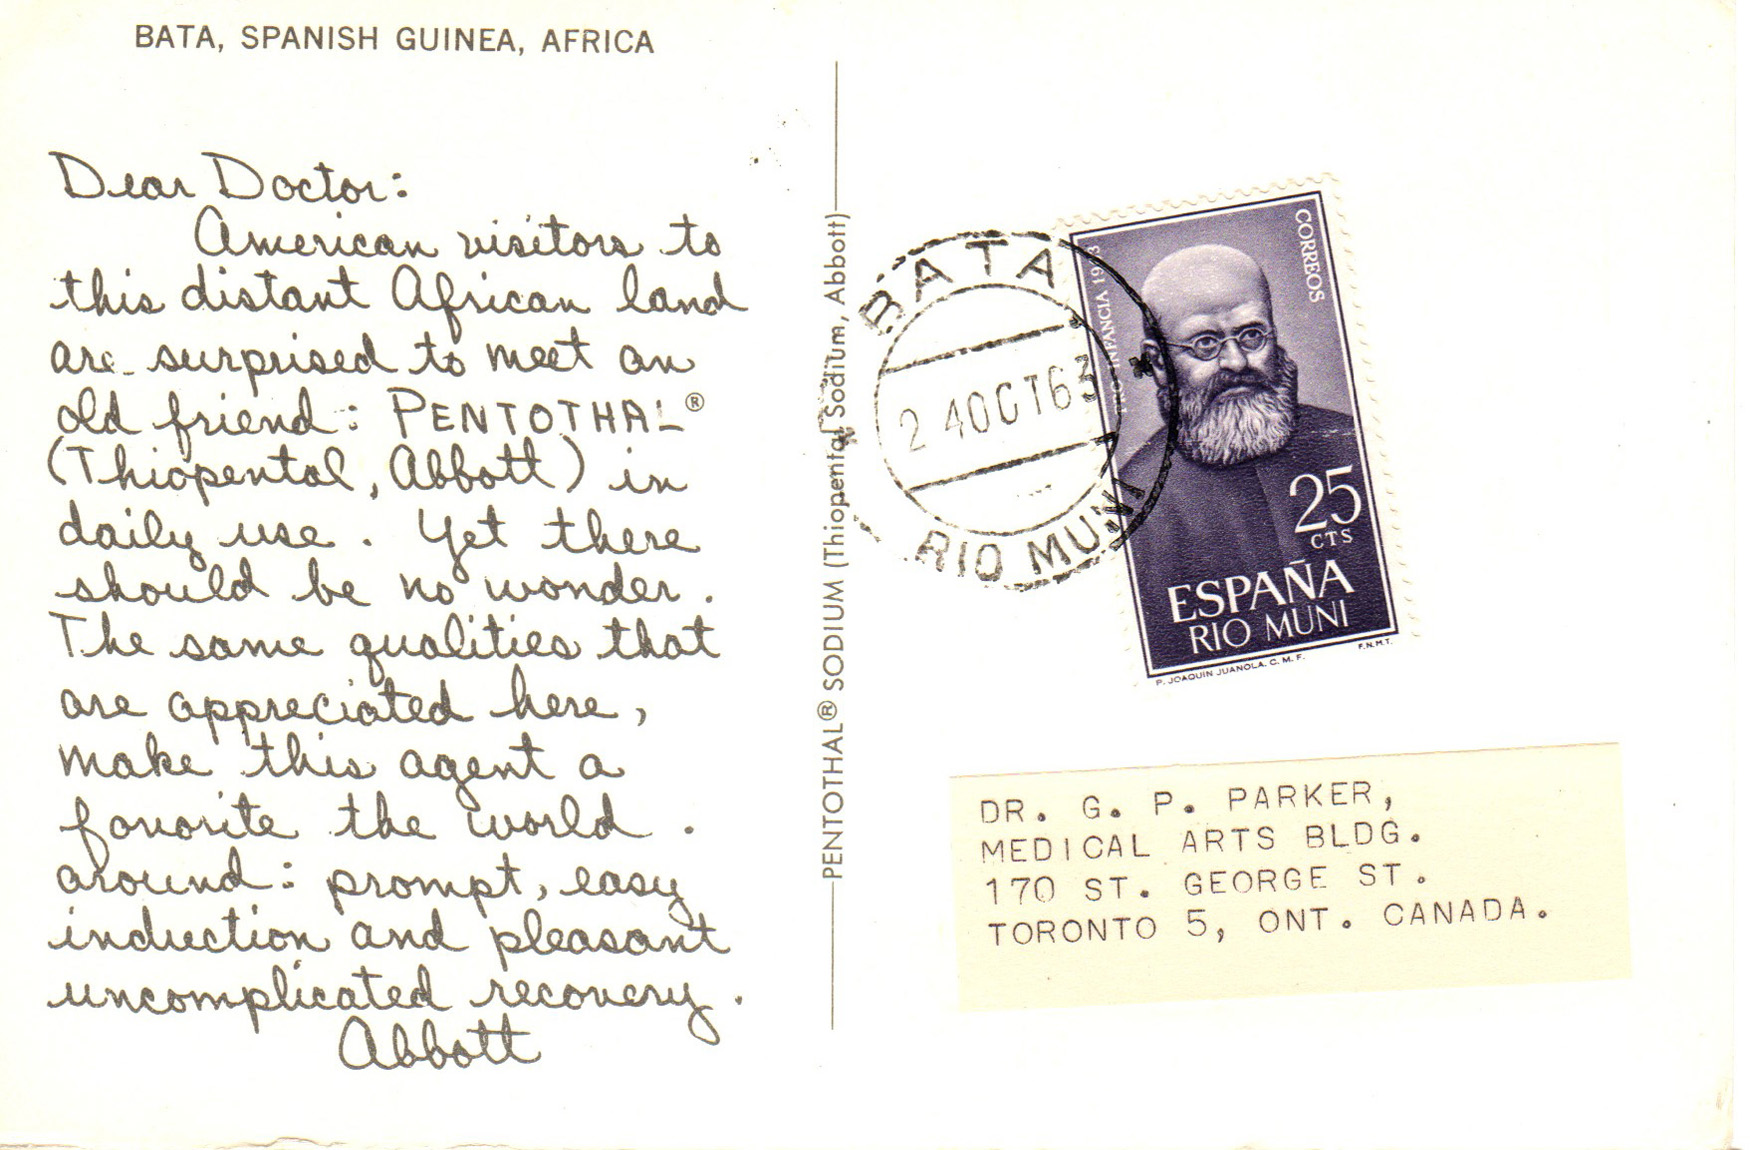 BATA, SPANISH GUINEA, AFRICA
Dear Doctor:
American visitors to
this distant African land
are surprised to meet an
old friend: PENTOTHAL®
(Thiopental, Abbott) in
daily use. Yet there
should be no wonder.
The same qualities that
are appreciated here,
make this agent a
favorite the world
around: prompt, easy
induction and pleasant
uncomplicated recovery.
Abbott
PENTOTHAL® SODIUM (Thiopental Sodium, Abbott)
BATA
24OCT63
RIO MUNI
PRO-INFANCIA 1963
CORREOS
25
CTS
ESPAÑA
RIO MUNI
P. JOAQUIN JUANOLA. C. M. F.
F.N.M.T.
DR. G. P. PARKER,
MEDICAL ARTS BLDG.
170 ST. GEORGE ST.
TORONTO 5, ONT. CANADA.